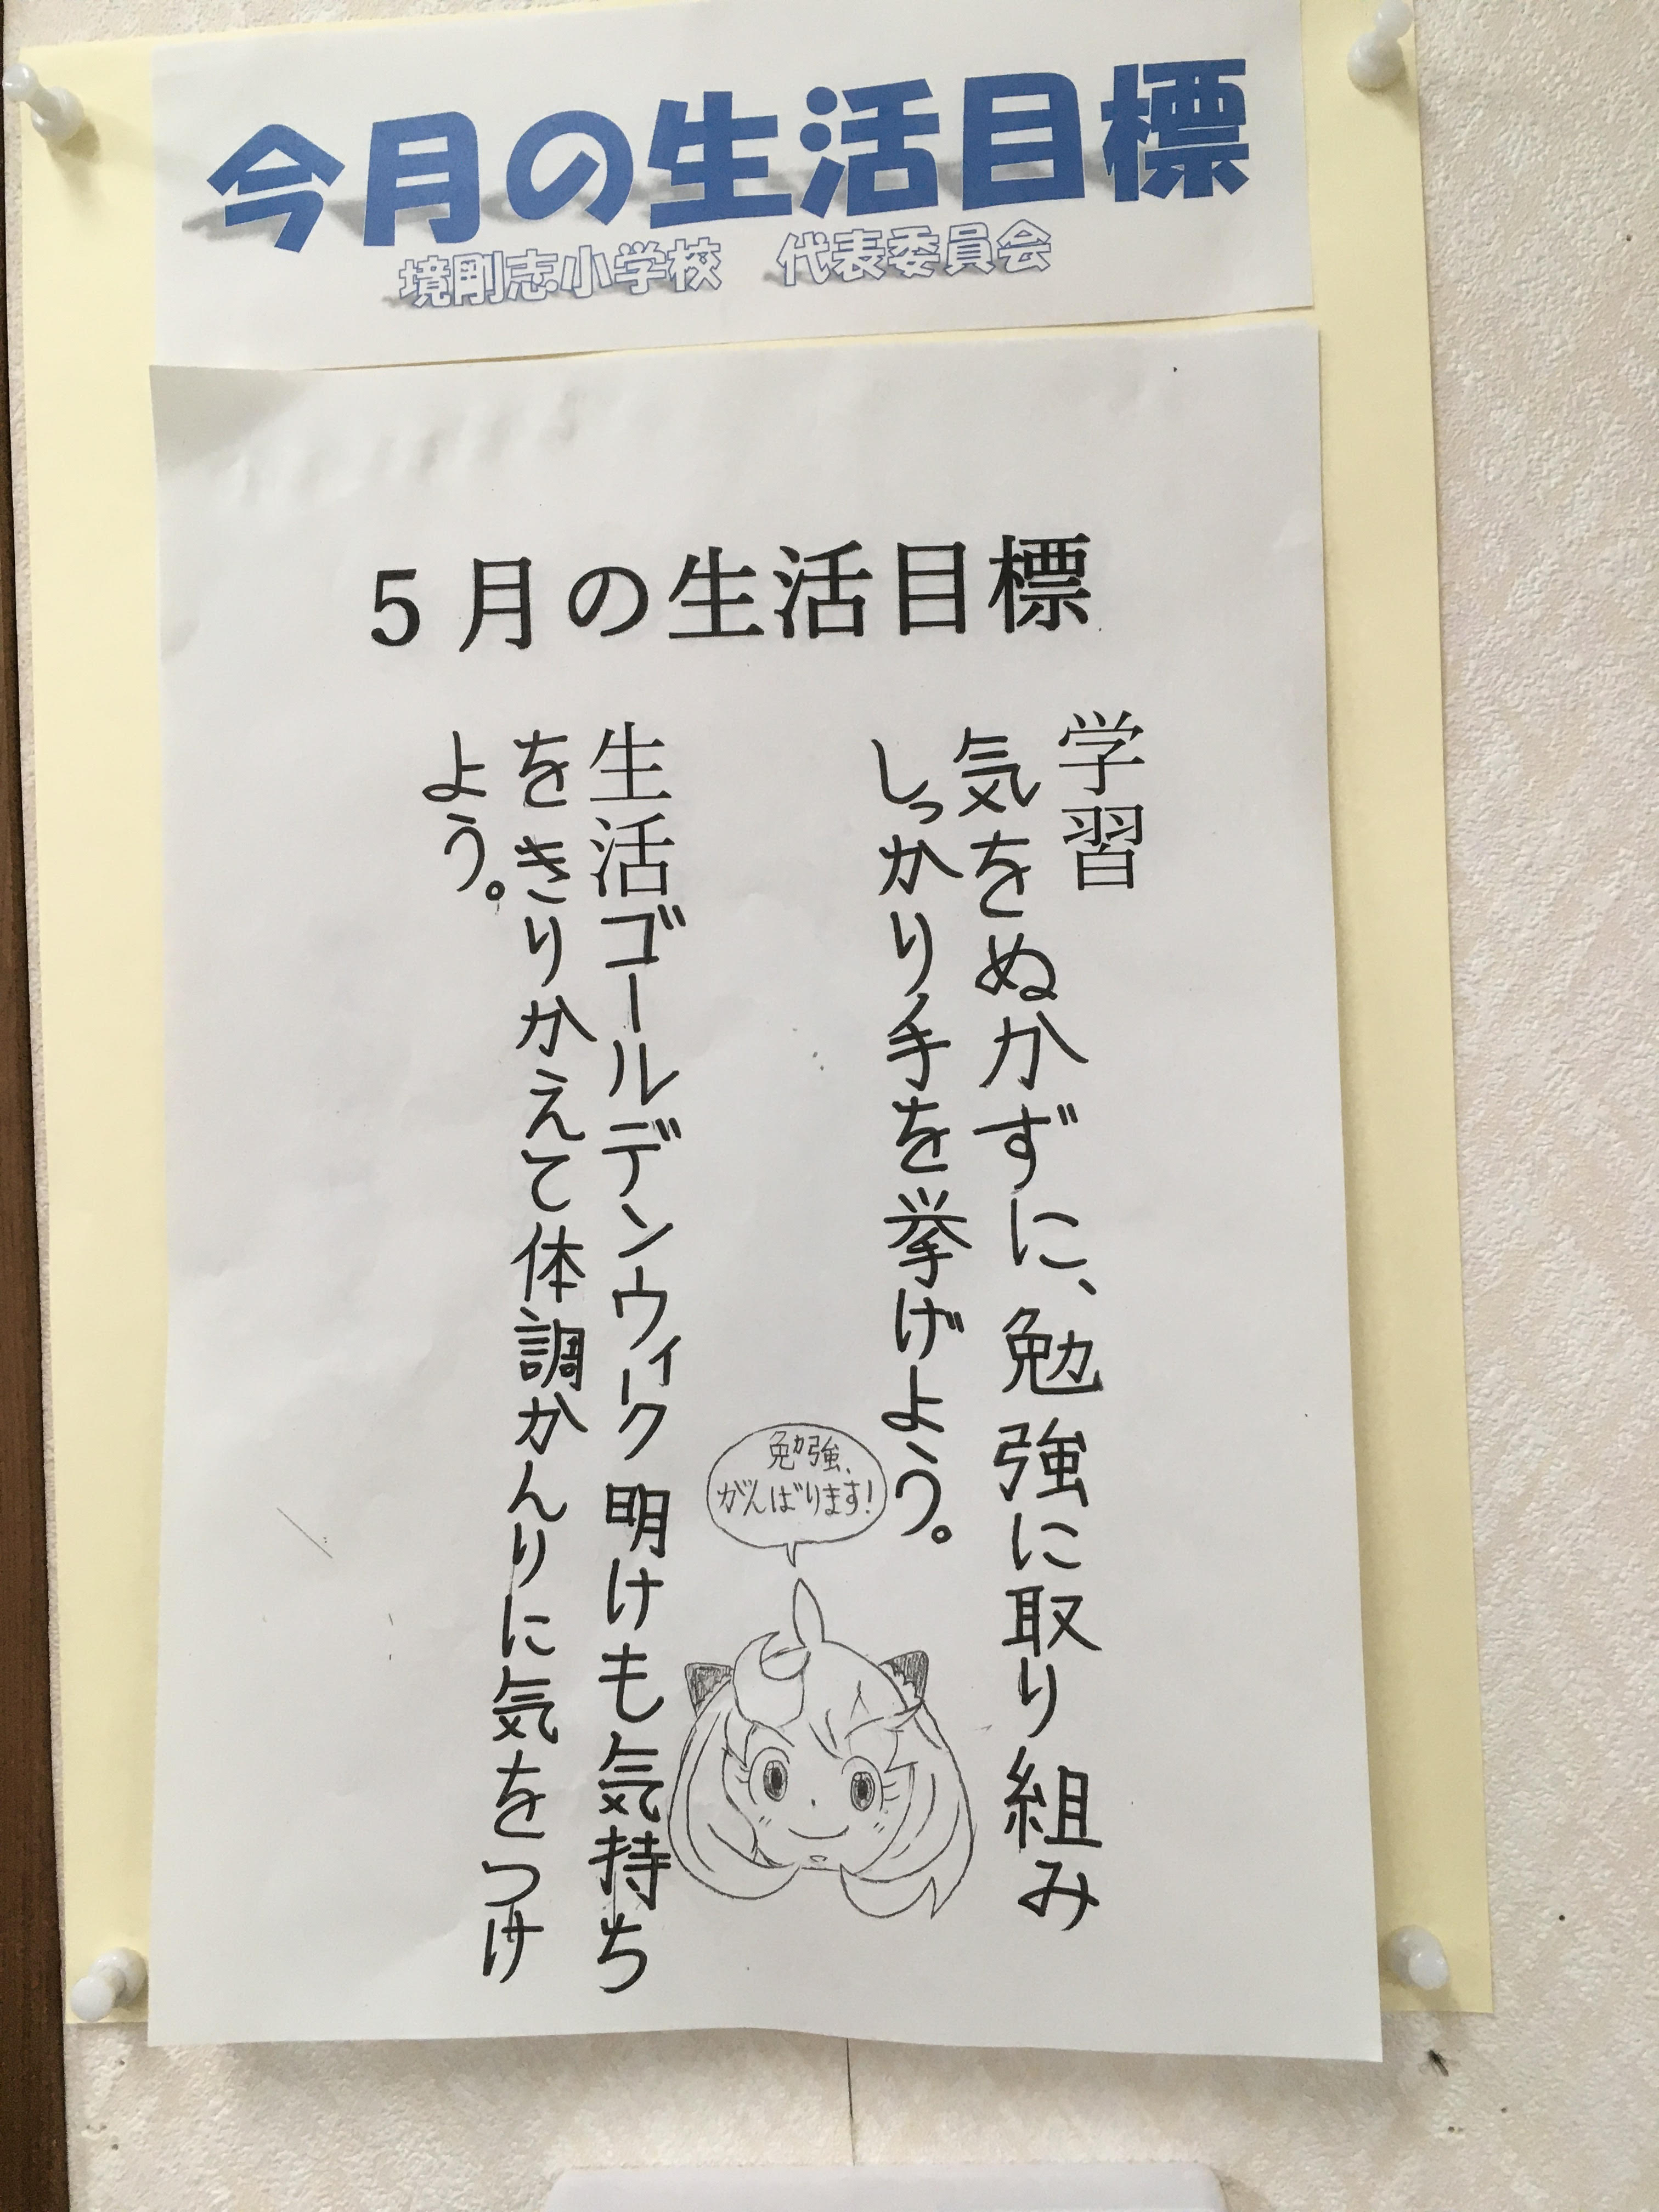 今月の生活目標
境剛志小学校　代表委員会
5月の生活目標
学習
気をぬかずに、勉強に取り組み
しっかり手を挙げよう。
勉強、
がんばります!
生活ゴールデンウィーク明けも気持ち
をきりかえて体調かんりに気をつけ
よう。